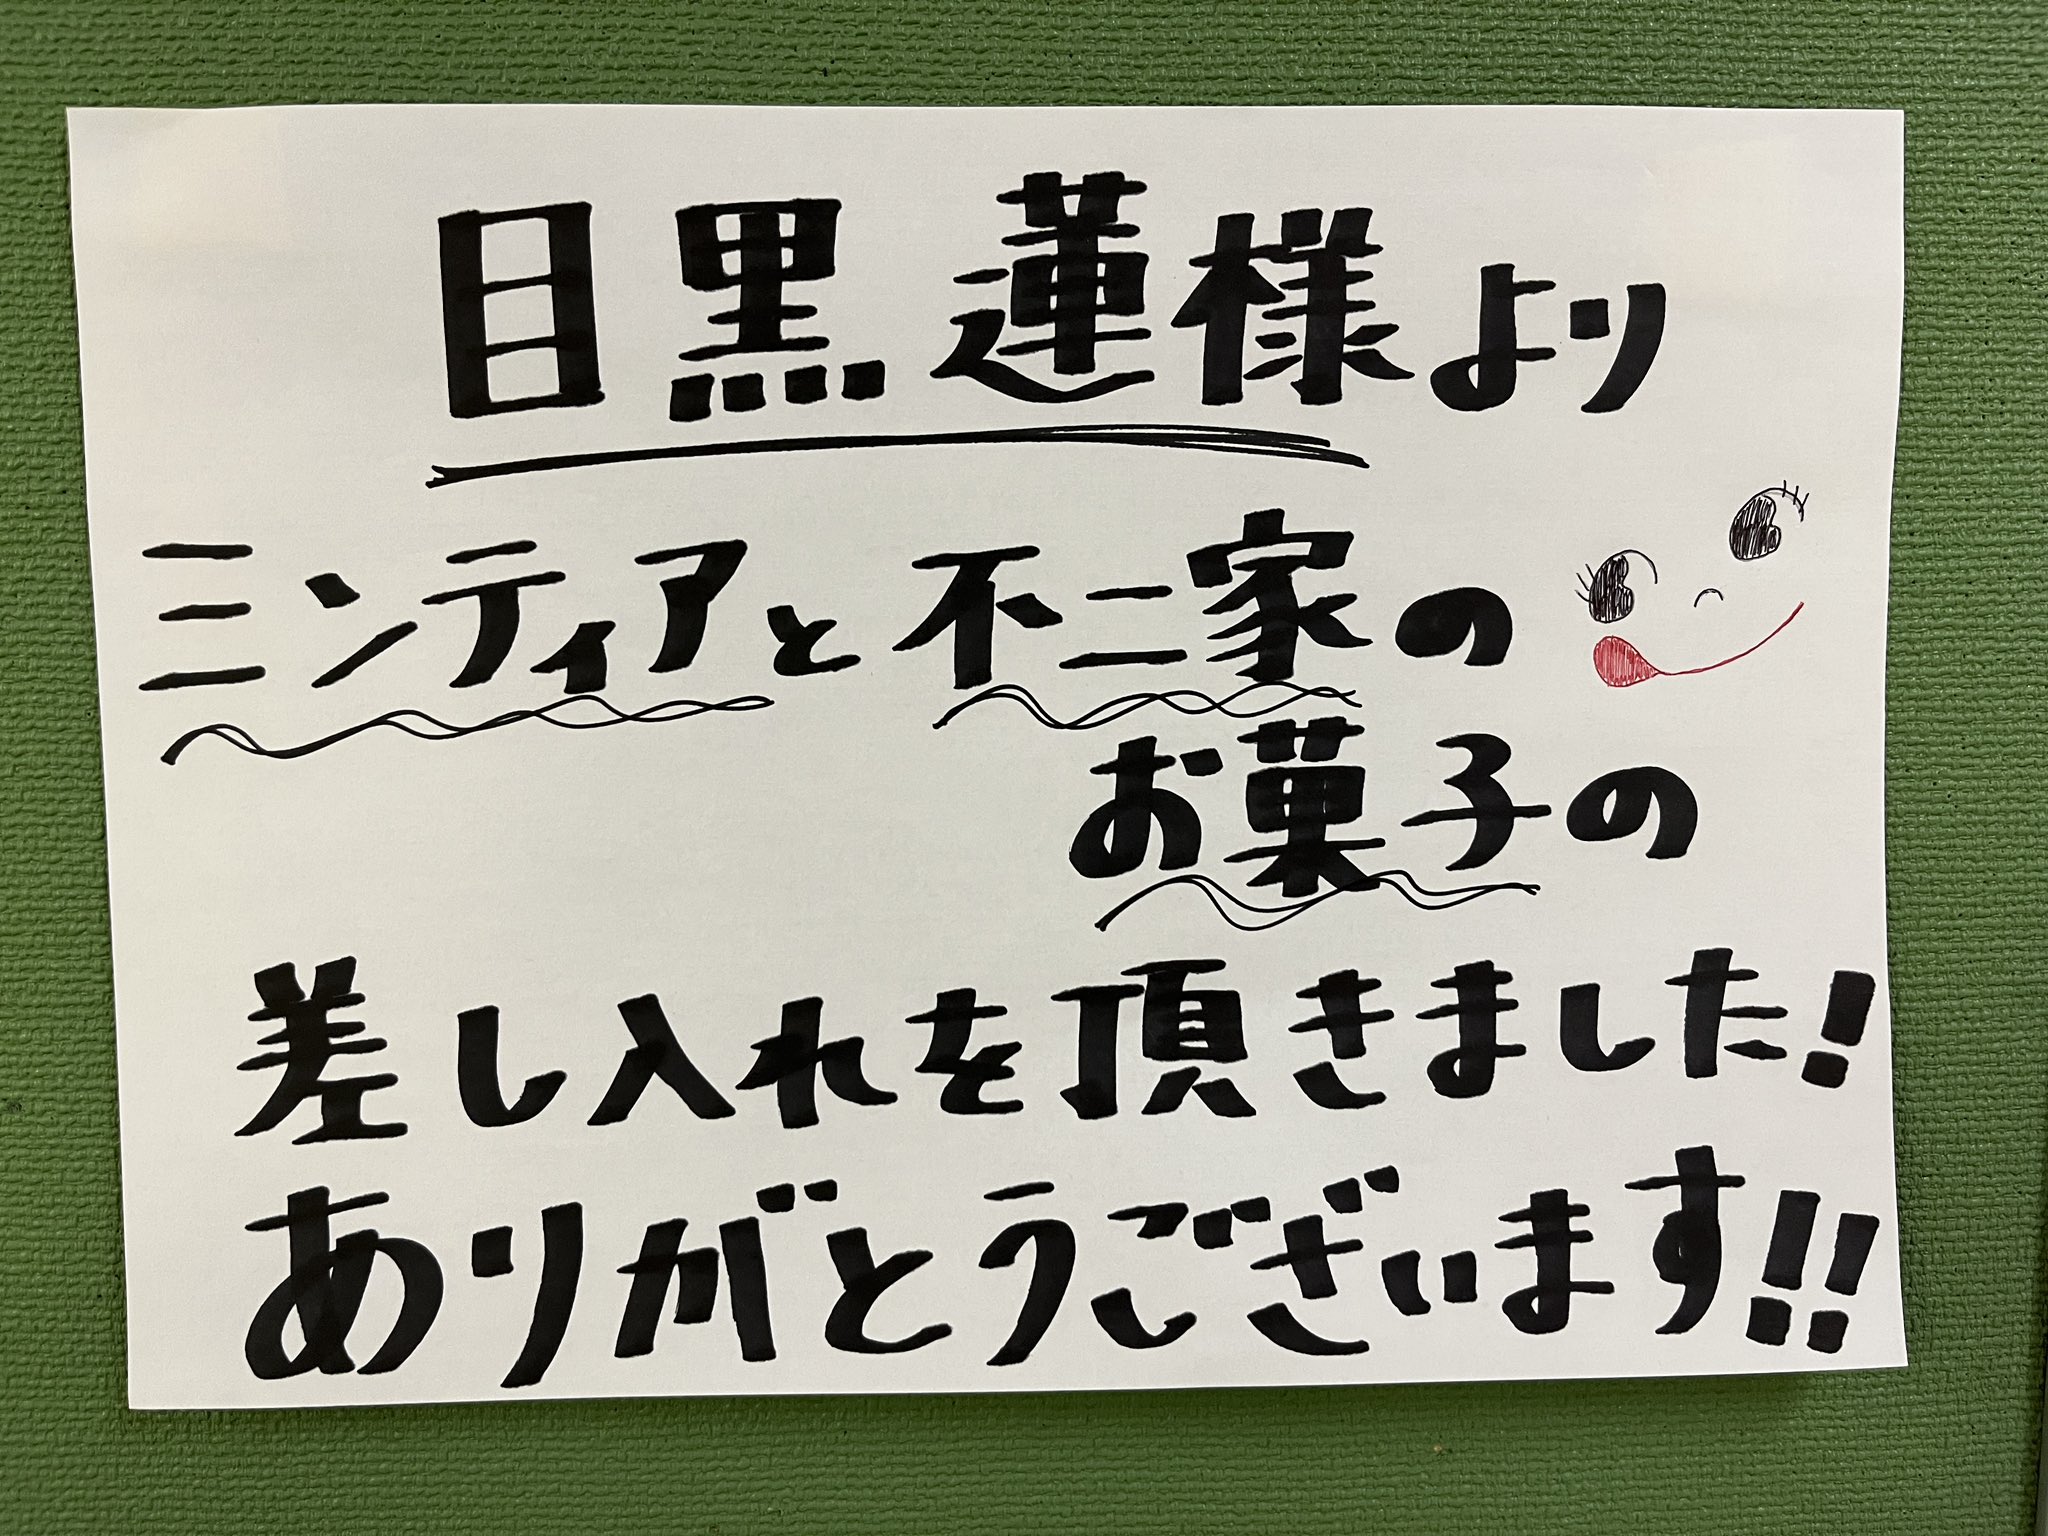 目黒蓮様より
ミンティアと不二家の
お菓子の
差し入れを頂きました!
ありがとうございます!!